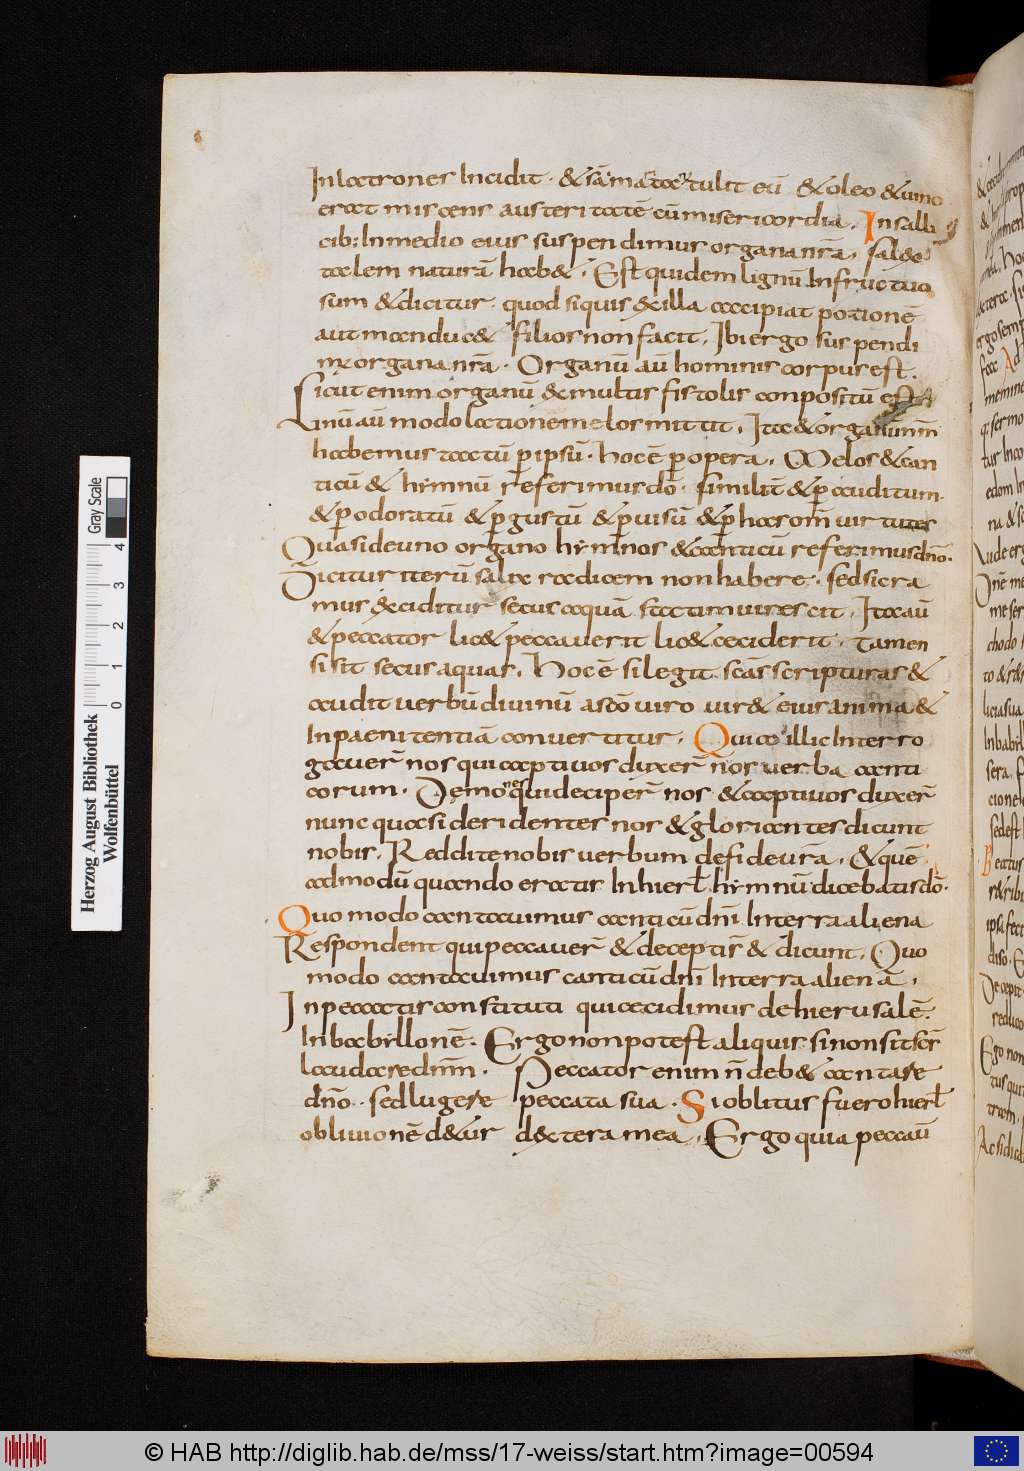 In latrones Incidit · & samaritatulit eū & oleo & uino
erat miscens austeritatē cū misericordia . In sali
cib; In medio eius suspendimus organa nrā . sal&
talem naturā hab& . Est quidem lignū Infructuo
sum & dicitur · quod siquis & illa accipiat potionē
aut manduc& filios non facit . Ibi ergo suspendi
mr organa nrā . Organū aū hominis corpus est .
Sicut enim organū & multis fistolis conpositū est
unū aū modolationem elos mittit . Ita & organū nrm
habemus tactū p ipsū . hoc ē p opera . Melos & can
ticū & hymnū referimus dō · similit & p auditum
& p odoratū & p gustū & p uisū & p has om̄ uirtutes
Quasi de uno organo hymnos & canticū referimus dn̄o .
Dicitur iterū salix radicem non habere . sed si cra
mus exciditur secus aquā statim uirescit . Ita aū
& peccator lic& peccauerit lic& ceciderit . tamen
si sit secus aquas . hoc ē si legit scas scripturas &
audit uerbū diuinū a scō uiro uir& eius anima &
In paenitentiā conuertitur . Quia illic Interro
gauer̄ nos qui captiuos duxer̄ nos uerba canti
corum . Demones qui deciper̄ nos & captiuos duxer̄
nunc quasi deridentes nos & gloriantes dicunt
nobis . Reddite nobis uerbum de fide urā . & quē
admodū quando eratis In hierl̄ hymnū dicebatis dō .
Quomodo cantauimus canticū dn̄i In terra aliena
Respondent qui peccauer̄ & decepti s̄ & dicunt . Quo
modo cantauimus canticū dn̄i In terra alienā .
In peccatis constituti qui cecidimus de hierusalē .
In babyllonē . Ergo non potest aliquis si non sit scr̄
laudare dnm̄ . Peccator enim n̄ deb& cantare
dn̄o . sed lugere peccata sua . Si oblitus fuero hierl̄
obliuionē d&ur dextera mea . Ergo quia peccaū
Gray Scale
4
3
2
1
0
Herzog August Bibliothek
Wolfenbüttel
© HAB http://diglib.hab.de/mss/17-weiss/start.htm?image=00594